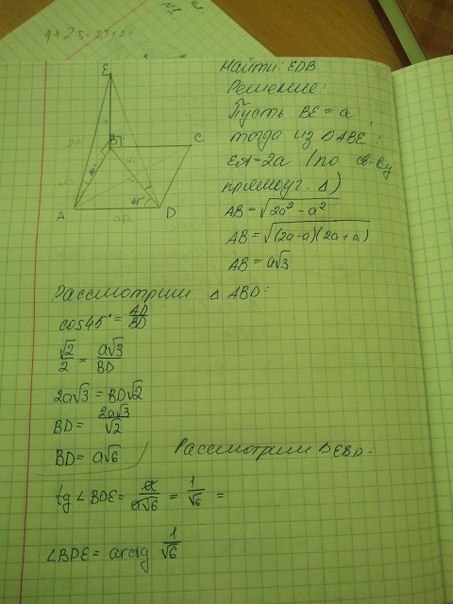 Найти: EDB
Решение:
Пусть BE = a
тогда из △ABE:
EA = 2a (по св-ву
прямоуг. △)
AB = √(2a² - a²)
AB = √((2a-a)(2a+a))
AB = a√3
E
B
C
A
D
45°
Рассмотрим △ ABD:
cos45° = AD/BD
√2/2 = a√3/BD
2a√3 = BD√2
BD = 2a√3/√2
BD = a√6
Рассмотрим △EBD:
tg ∠ BDE = a/a√6 = 1/√6 =
∠BDE = arctg 1/√6